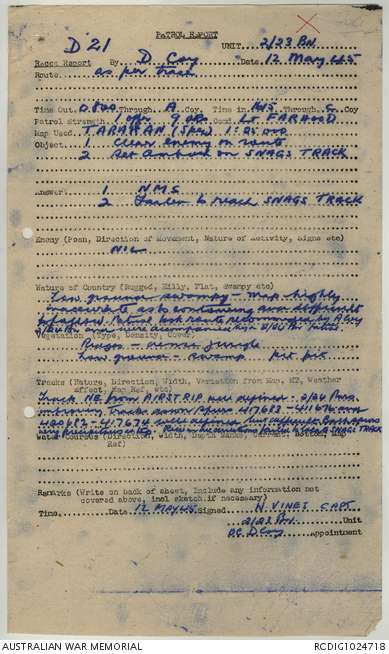 PATROL REPORT
D 21 UNIT 2/23 Bn
Recce Report By D Coy Date 12 May 45
Route as per trace
Time Out 0800 Through A Coy. Time in 1815 Through C Coy
Patrol Strength 1 offr 9 ORs Comd. Lt FARHOOD
Map Used TARAKAN (Spec) 1:25,000
Object 1 Clear enemy on route
2 Set Ambush on SNAGS TRACK
Answer: 1 N.M.S.
2 Failed to reach SNAGS TRACK
Enemy (Posn, Direction of Movement, Nature of Activity, Signs etc)
Nil
Nature of Country (Rugged, Hilly, Flat, Swampy etc)
Low ground swampy - Map highly
inaccurate as to contouring and difficult
to follow. Patrol took route recommended by A Coy
2/24 Bn and were accompanied by 2/24 Bn
Vegetation (Type, Density, Cover)
Ridges - Primary Jungle
Low ground - swamp pit pit
Tracks (Nature, Direction, Width, Variation from Map, MT, Weather
effect, Map Ref etc)
Track NE from AIRSTRIP well defined - 2/24 Bn
improving. Tracks down spurs 417683 - 411676 and
Water Courses (Direction, Width, Depth Banks, Current, Bottom, Map
Ref)
Remarks (Write on back of sheet, include any information not
covered above, incl sketch if necessary)
Time Date 12 May 45 Signed H VINES CAPT
2/23 Bn Unit
OC D Coy appointment
AUSTRALIAN WAR MEMORIAL RCDIG1024718